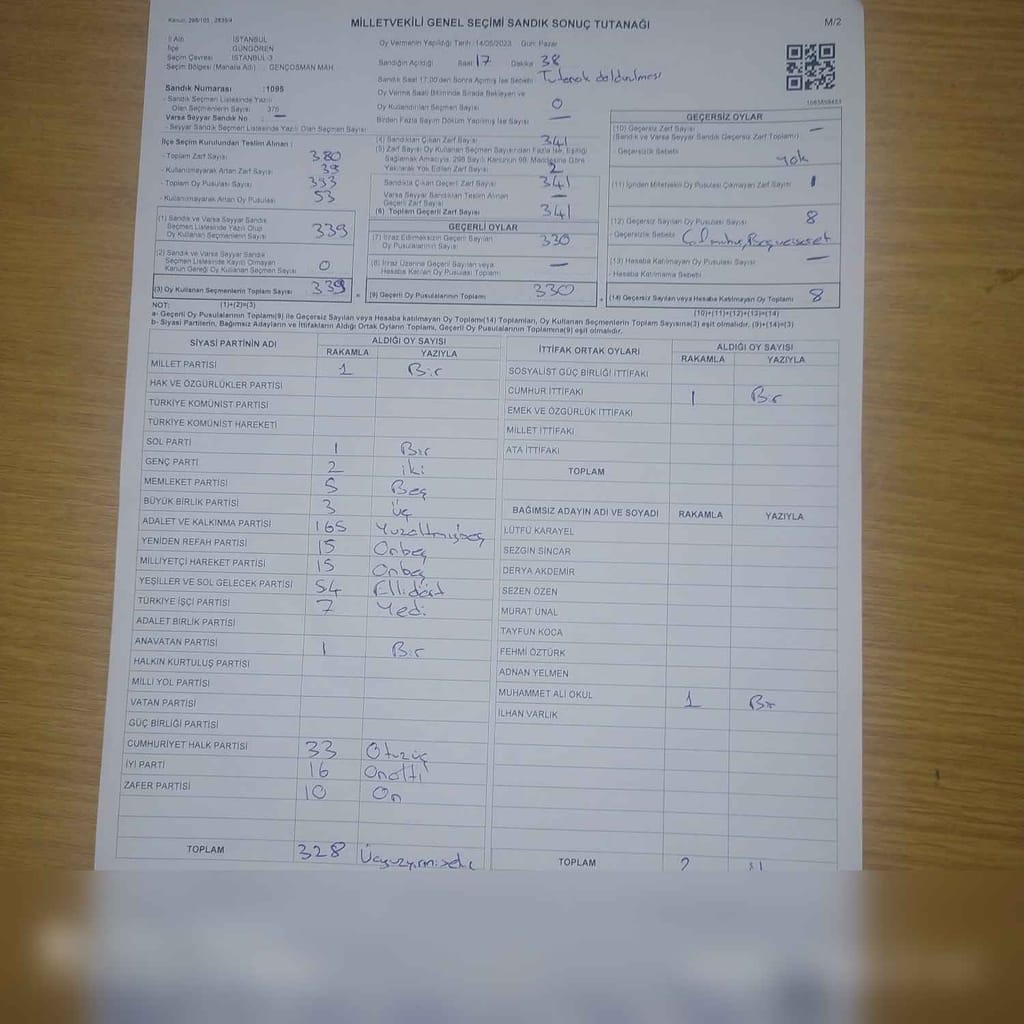 Kanun: 298/105, 2839/4
MİLLETVEKİLİ GENEL SEÇİMİ SANDIK SONUÇ TUTANAĞI
M/2
İl Adı : İSTANBUL
İlçe : GÜNGÖREN
Seçim Çevresi : İSTANBUL-3
Seçim Bölgesi (Mahalle Adı) : GENÇOSMAN MAH.
Oy Vermenin Yapıldığı Tarih : 14/05/2023 Gün: Pazar
Sandığın Açıldığı Saat 17 Dakika 38
Sandık Saat 17:00'den Sonra Açılmış İse Sebebi Tutanak doldurulması
Oy Verme Saati Bitiminde Sırada Bekleyen ve
Oy Kullandırılan Seçmen Sayısı 0
Birden Fazla Sayım Döküm Yapılmış İse Sayısı —
Sandık Numarası : 1095
- Sandık Seçmen Listesinde Yazılı
Olan Seçmenlerin Sayısı 376
Varsa Seyyar Sandık No —
- Seyyar Sandık Seçmen Listesinde Yazılı Olan Seçmen Sayısı
İlçe Seçim Kurulundan Teslim Alınan :
- Toplam Zarf Sayısı 380
- Kullanılmayarak Artan Zarf Sayısı 39
- Toplam Oy Pusulası Sayısı 393
- Kullanılmayarak Artan Oy Pusulası 53
(1) Sandık ve Varsa Seyyar Sandık
Seçmen Listesinde Yazılı Olup
Oy Kullanan Seçmenlerin Sayısı 339
(2) Sandık ve Varsa Seyyar Sandık
Seçmen Listesinde Kayıtlı Olmayan
Kanun Gereği Oy Kullanan Seçmen Sayısı 0
(3) Oy Kullanan Seçmenlerin Toplam Sayısı 339
(4) Sandıktan Çıkan Zarf Sayısı 341
(5) Zarf Sayısı Oy Kullanan Seçmen Sayısından Fazla İse, Eşitliği
Sağlamak Amacıyla, 298 Sayılı Kanunun 98. Maddesine Göre
Yakılarak Yok Edilen Zarf Sayısı 2
Sandıkta Çıkan Geçerli Zarf Sayısı 341
Varsa Seyyar Sandıktan Teslim Alınan
Geçerli Zarf Sayısı —
(6) Toplam Geçerli Zarf Sayısı 341
GEÇERLİ OYLAR
(7) İtiraz Edilmeksizin Geçerli Sayılan
Oy Pusulalarının Sayısı 330
(8) İtiraz Üzerine Geçerli Sayılan veya
Hesaba Katılan Oy Pusulası Toplamı —
(9) Geçerli Oy Pusulalarının Toplamı 330
GEÇERSİZ OYLAR
(10) Geçersiz Zarf Sayısı —
(Sandık ve Varsa Seyyar Sandık Geçersiz Zarf Toplamı)
- Geçersizlik Sebebi yok
(11) İçinden Milletvekili Oy Pusulası Çıkmayan Zarf Sayısı 1
(12) Geçersiz Sayılan Oy Pusulası Sayısı 8
- Geçersizlik Sebebi
(13) Hesaba Katılmayan Oy Pusulası Sayısı —
- Hesaba Katılmama Sebebi
(14) Geçersiz Sayılan veya Hesaba Katılmayan Oy Toplamı 8
NOT: (1)+(2)=(3)
(10)+(11)+(12)+(13)=(14)
a- Geçerli Oy Pusulaları Toplamı(9) ile Geçersiz Sayılan veya Hesaba Katılmayan Oy Toplamı(14) Toplamları, Oy Kullanan Seçmenlerin Toplam Sayısına(3) eşit olmalıdır. (9)+(14)=(3)
b- Siyasi Partilerin, Bağımsız Adayların ve İttifakların Aldığı Ortak Oyların Toplamı, Geçerli Oy Pusulalarının Toplamına(9) eşit olmalıdır.
SİYASİ PARTİNİN ADI ALDIĞI OY SAYISI
RAKAMLA YAZIYLA
MİLLET PARTİSİ 1 Bir
HAK VE ÖZGÜRLÜKLER PARTİSİ
TÜRKİYE KOMÜNİST PARTİSİ
TÜRKİYE KOMÜNİST HAREKETİ
SOL PARTİ 1 Bir
GENÇ PARTİ 2 iki
MEMLEKET PARTİSİ 5 Beş
BÜYÜK BİRLİK PARTİSİ 3 Üç
ADALET VE KALKINMA PARTİSİ 165 Yuzaltmışbeş
YENİDEN REFAH PARTİSİ 15 Onbeş
MİLLİYETÇİ HAREKET PARTİSİ 15 Onbeş
YEŞİLLER VE SOL GELECEK PARTİSİ 54 Ellidört
TÜRKİYE İŞÇİ PARTİSİ 7 Yedi
ADALET BİRLİK PARTİSİ
ANAVATAN PARTİSİ 1 Bir
HALKIN KURTULUŞ PARTİSİ
MİLLİ YOL PARTİSİ
VATAN PARTİSİ
GÜÇ BİRLİĞİ PARTİSİ
CUMHURİYET HALK PARTİSİ 33 Otuzüç
İYİ PARTİ 16 Onaltı
ZAFER PARTİSİ 10 On
TOPLAM 328
İTTİFAK ORTAK OYLARI ALDIĞI OY SAYISI
RAKAMLA YAZIYLA
SOSYALİST GÜÇ BİRLİĞİ İTTİFAKI
CUMHUR İTTİFAKI 1 Bir
EMEK VE ÖZGÜRLÜK İTTİFAKI
MİLLET İTTİFAKI
ATA İTTİFAKI
TOPLAM
BAĞIMSIZ ADAYIN ADI VE SOYADI RAKAMLA YAZIYLA
LÜTFÜ KARAYEL
SEZGİN SİNCAR
DERYA AKDEMİR
SEZEN ÖZEN
MURAT ÜNAL
TAYFUN KOCA
FEHMİ ÖZTÜRK
ADNAN YELMEN
MUHAMMET ALİ OKUL 1 Bir
İLHAN VARLIK
TOPLAM